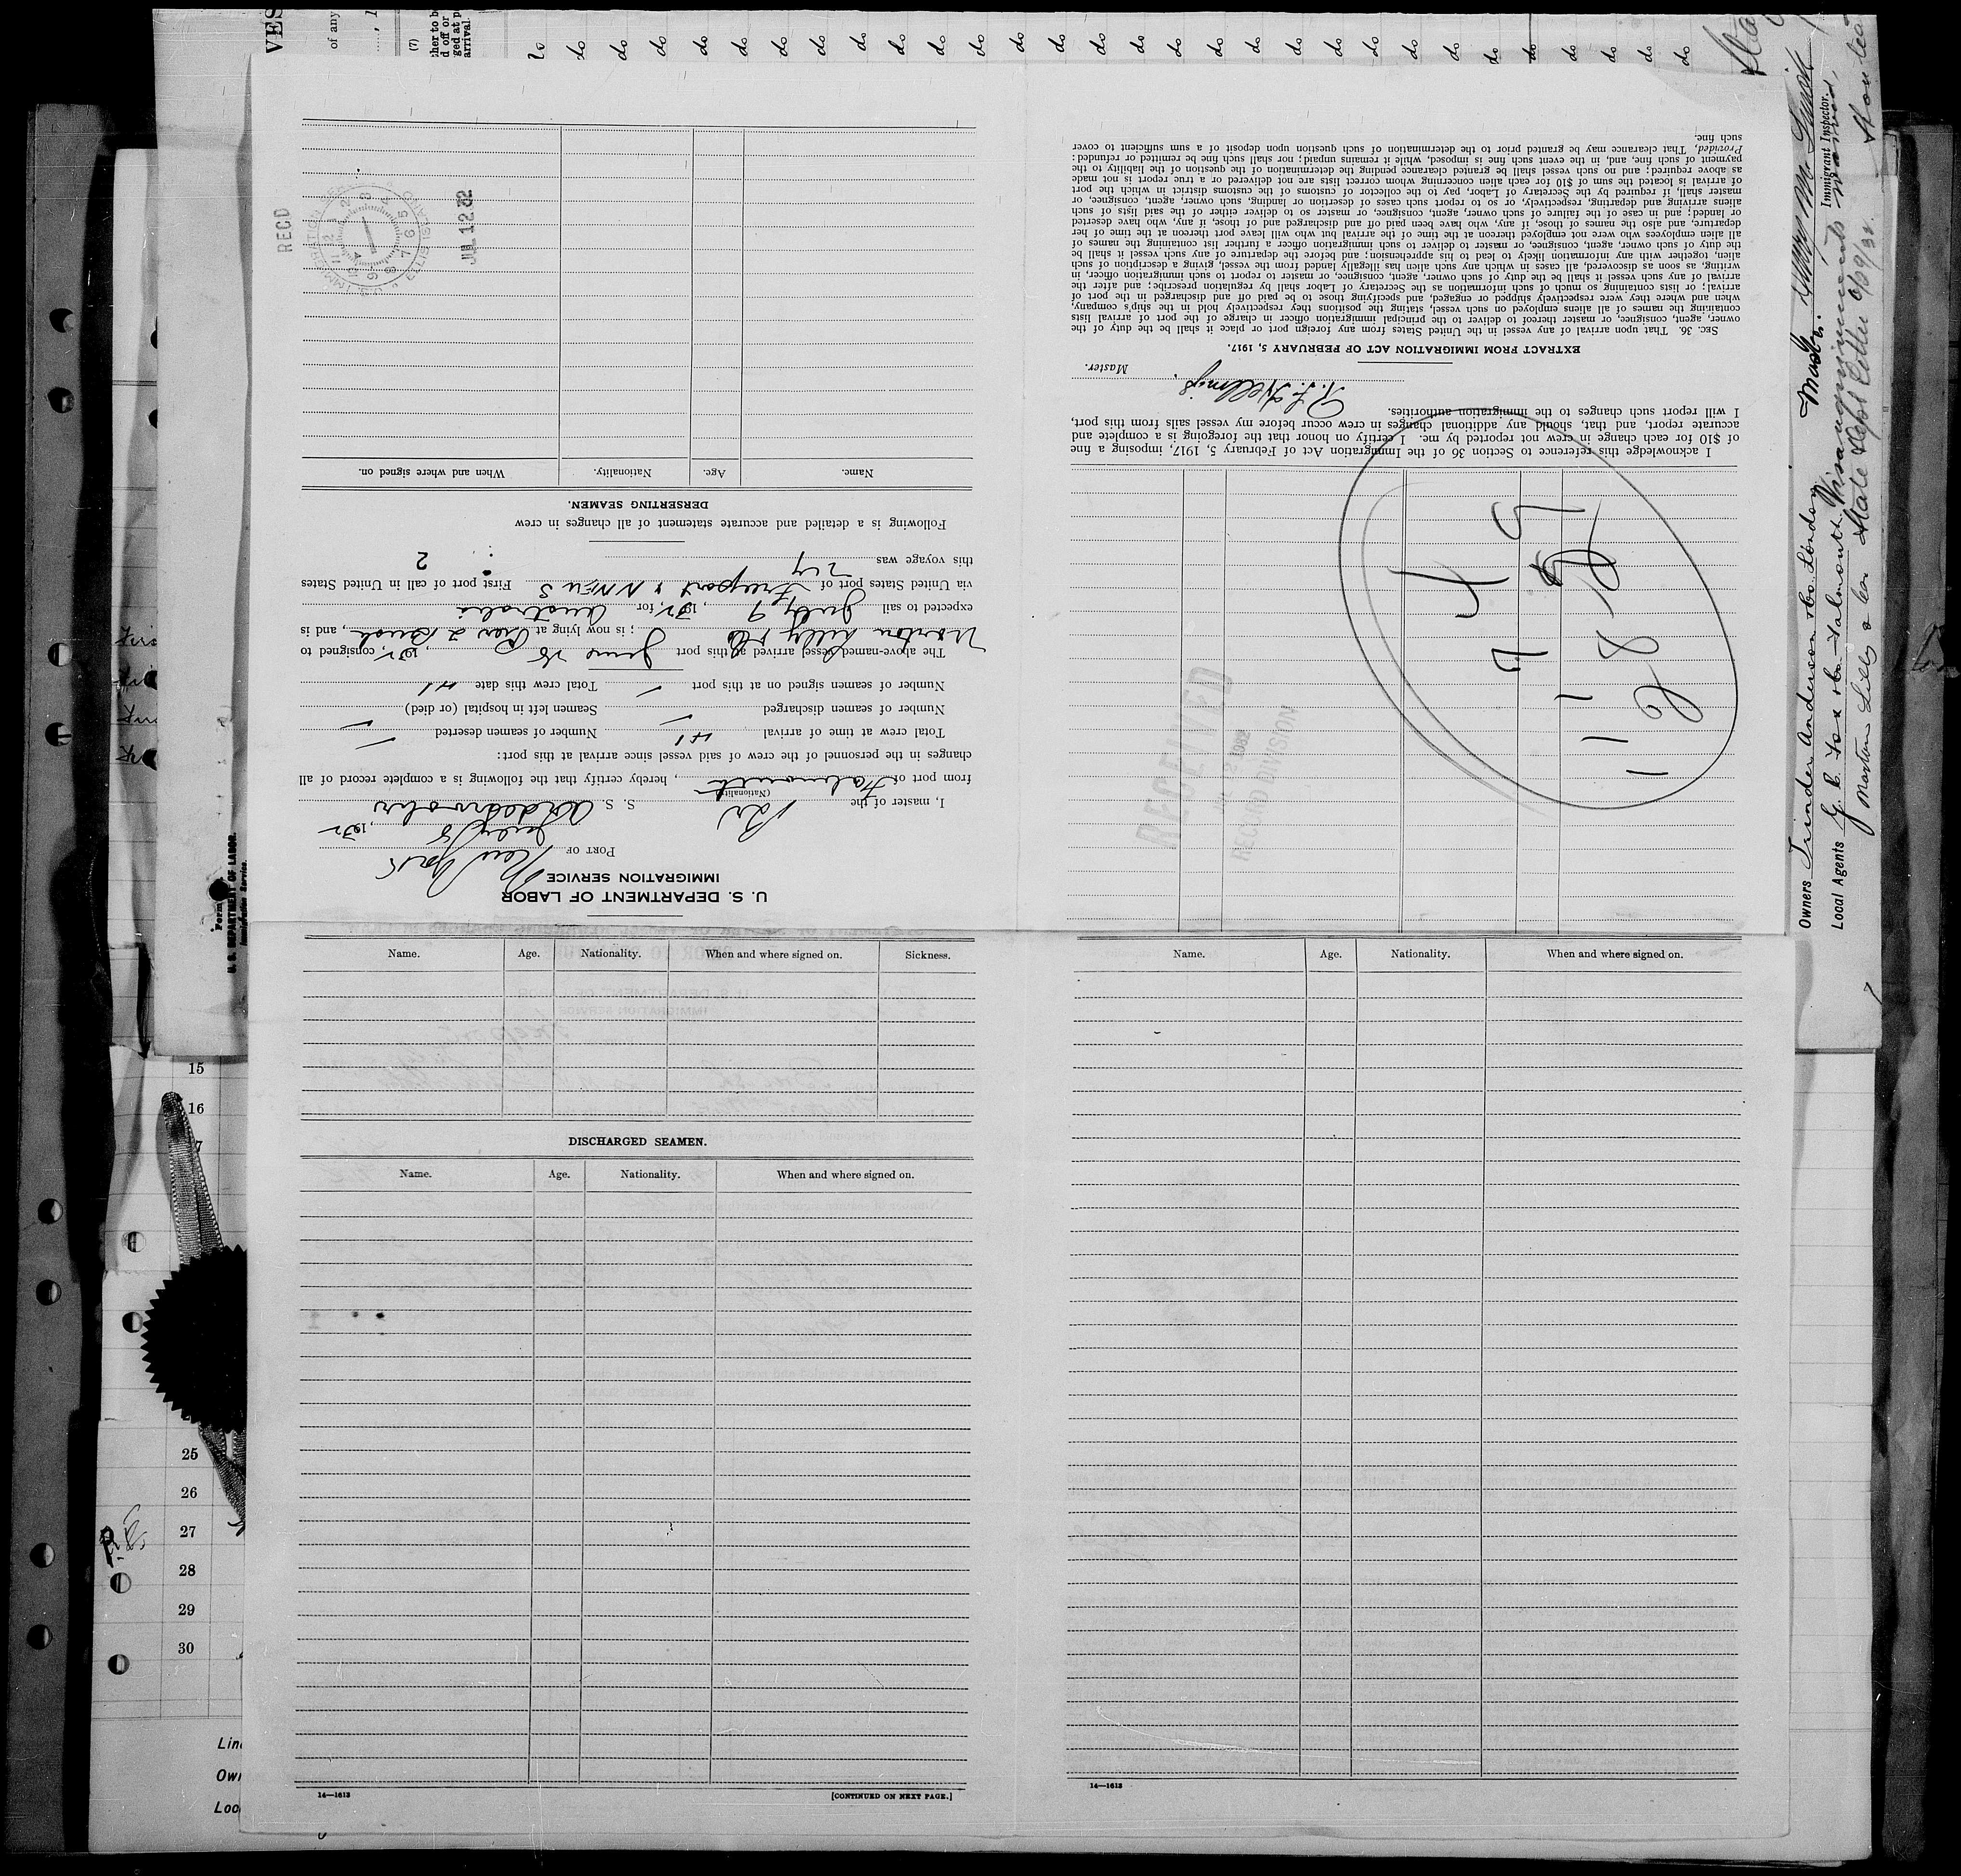 U. S. DEPARTMENT OF LABOR
IMMIGRATION SERVICE
PORT OF New York
July 8, 1932
I, master of the Br S. S. Ardenvohr
(Nationality)
from port of Falmouth, hereby certify that the following is a complete record of all
changes in the personnel of the crew of said vessel since arrival at this port:
Total crew at time of arrival 41 Number of seamen deserted /
Number of seamen discharged / Seamen left in hospital (or died) /
Number of seamen signed on at this port / Total crew this date 41
The above-named vessel arrived at this port June 28, 1932, consigned to
Norton Lilly & Co; is now lying at Pier 2 Bush, and is
expected to sail July 9, 1932, for Australia
via United States port of Freeport & N NEWS First port of call in United States
this voyage was 2
Following is a detailed and accurate statement of all changes in crew
DERSERTING SEAMEN.
Name. Age. Nationality. When and where signed on.
REC'D
JUL 12 32
U.S. IMMIGRATION
ELLIS ISLAND
I acknowledge this reference to Section 36 of the Immigration Act of February 5, 1917, imposing a fine
of $10 for each change in crew not reported by me. I certify on honor that the foregoing is a complete and
accurate report, and that, should any additional changes in crew occur before my vessel sails from this port,
I will report such changes to the immigration authorities.
Master.
EXTRACT FROM IMMIGRATION ACT OF FEBRUARY 5, 1917.
SEC. 36. That upon arrival of any vessel in the United States from any foreign port or place it shall be the duty of the
owner, agent, consignee, or master thereof to deliver to the principal immigration officer in charge of the port of arrival lists
containing the names of all aliens employed on such vessel, stating the positions they respectively hold in the ship's company,
when and where they were respectively shipped or engaged, and specifying those to be paid off and discharged in the port of
arrival; or lists containing so much of such information as the Secretary of Labor shall by regulation prescribe; and after the
arrival of any such vessel it shall be the duty of such owner, agent, consignee, or master to report to such immigration officer, in
writing, as soon as discovered, all cases in which any such alien has illegally landed from the vessel, giving a description of such
alien, together with any information likely to lead to his apprehension; and before the departure of any such vessel it shall be
the duty of such owner, agent, consignee, or master to deliver to such immigration officer a further list containing the names of
all alien employees who were not employed thereon at the time of the arrival but who will leave port thereon at the time of her
departure, and also the names of those, if any, who have been paid off and discharged and of those, if any, who have deserted
or landed; and in case of the failure of such owner, agent, consignee, or master so to deliver either of the said lists of such
aliens arriving and departing, respectively, or so to report such cases of desertion or landing, such owner, agent, consignee, or
master shall, if required by the Secretary of Labor, pay to the collector of customs of the customs district in which the port
of arrival is located the sum of $10 for each alien concerning whom correct lists are not delivered or a true report is not made
as above required; and no such vessel shall be granted clearance pending the determination of the question of the liability to the
payment of such fine, and, in the event such fine is imposed, while it remains unpaid; nor shall such fine be remitted or refunded:
Provided, That clearance may be granted prior to the determination of such question upon deposit of a sum sufficient to cover
such fine.
RECEIVED
RECORD DIVISION
Name. Age. Nationality. When and where signed on. Sickness.
DISCHARGED SEAMEN.
Name. Age. Nationality. When and where signed on.
14—1613 [CONTINUED ON NEXT PAGE.]
Name. Age. Nationality. When and where signed on.
14—1613
Owners Trinder Anderson & Co. London
Master.
Immigrant Inspector.
Local Agents G. C. Fox & Co. Falmouth
Norton Lilly & Co
State Dept Letter
Form
U. S. DEPARTMENT OF LABOR
Immigration Service.
VES
of any
(7)
ther to be
d off or
ged at p
arrival.
do do do do do do do do do do do do do do do do do do do do do do do do do do do do
15
16
7
25
26
27
28
29
30
Lin
Own
Loc